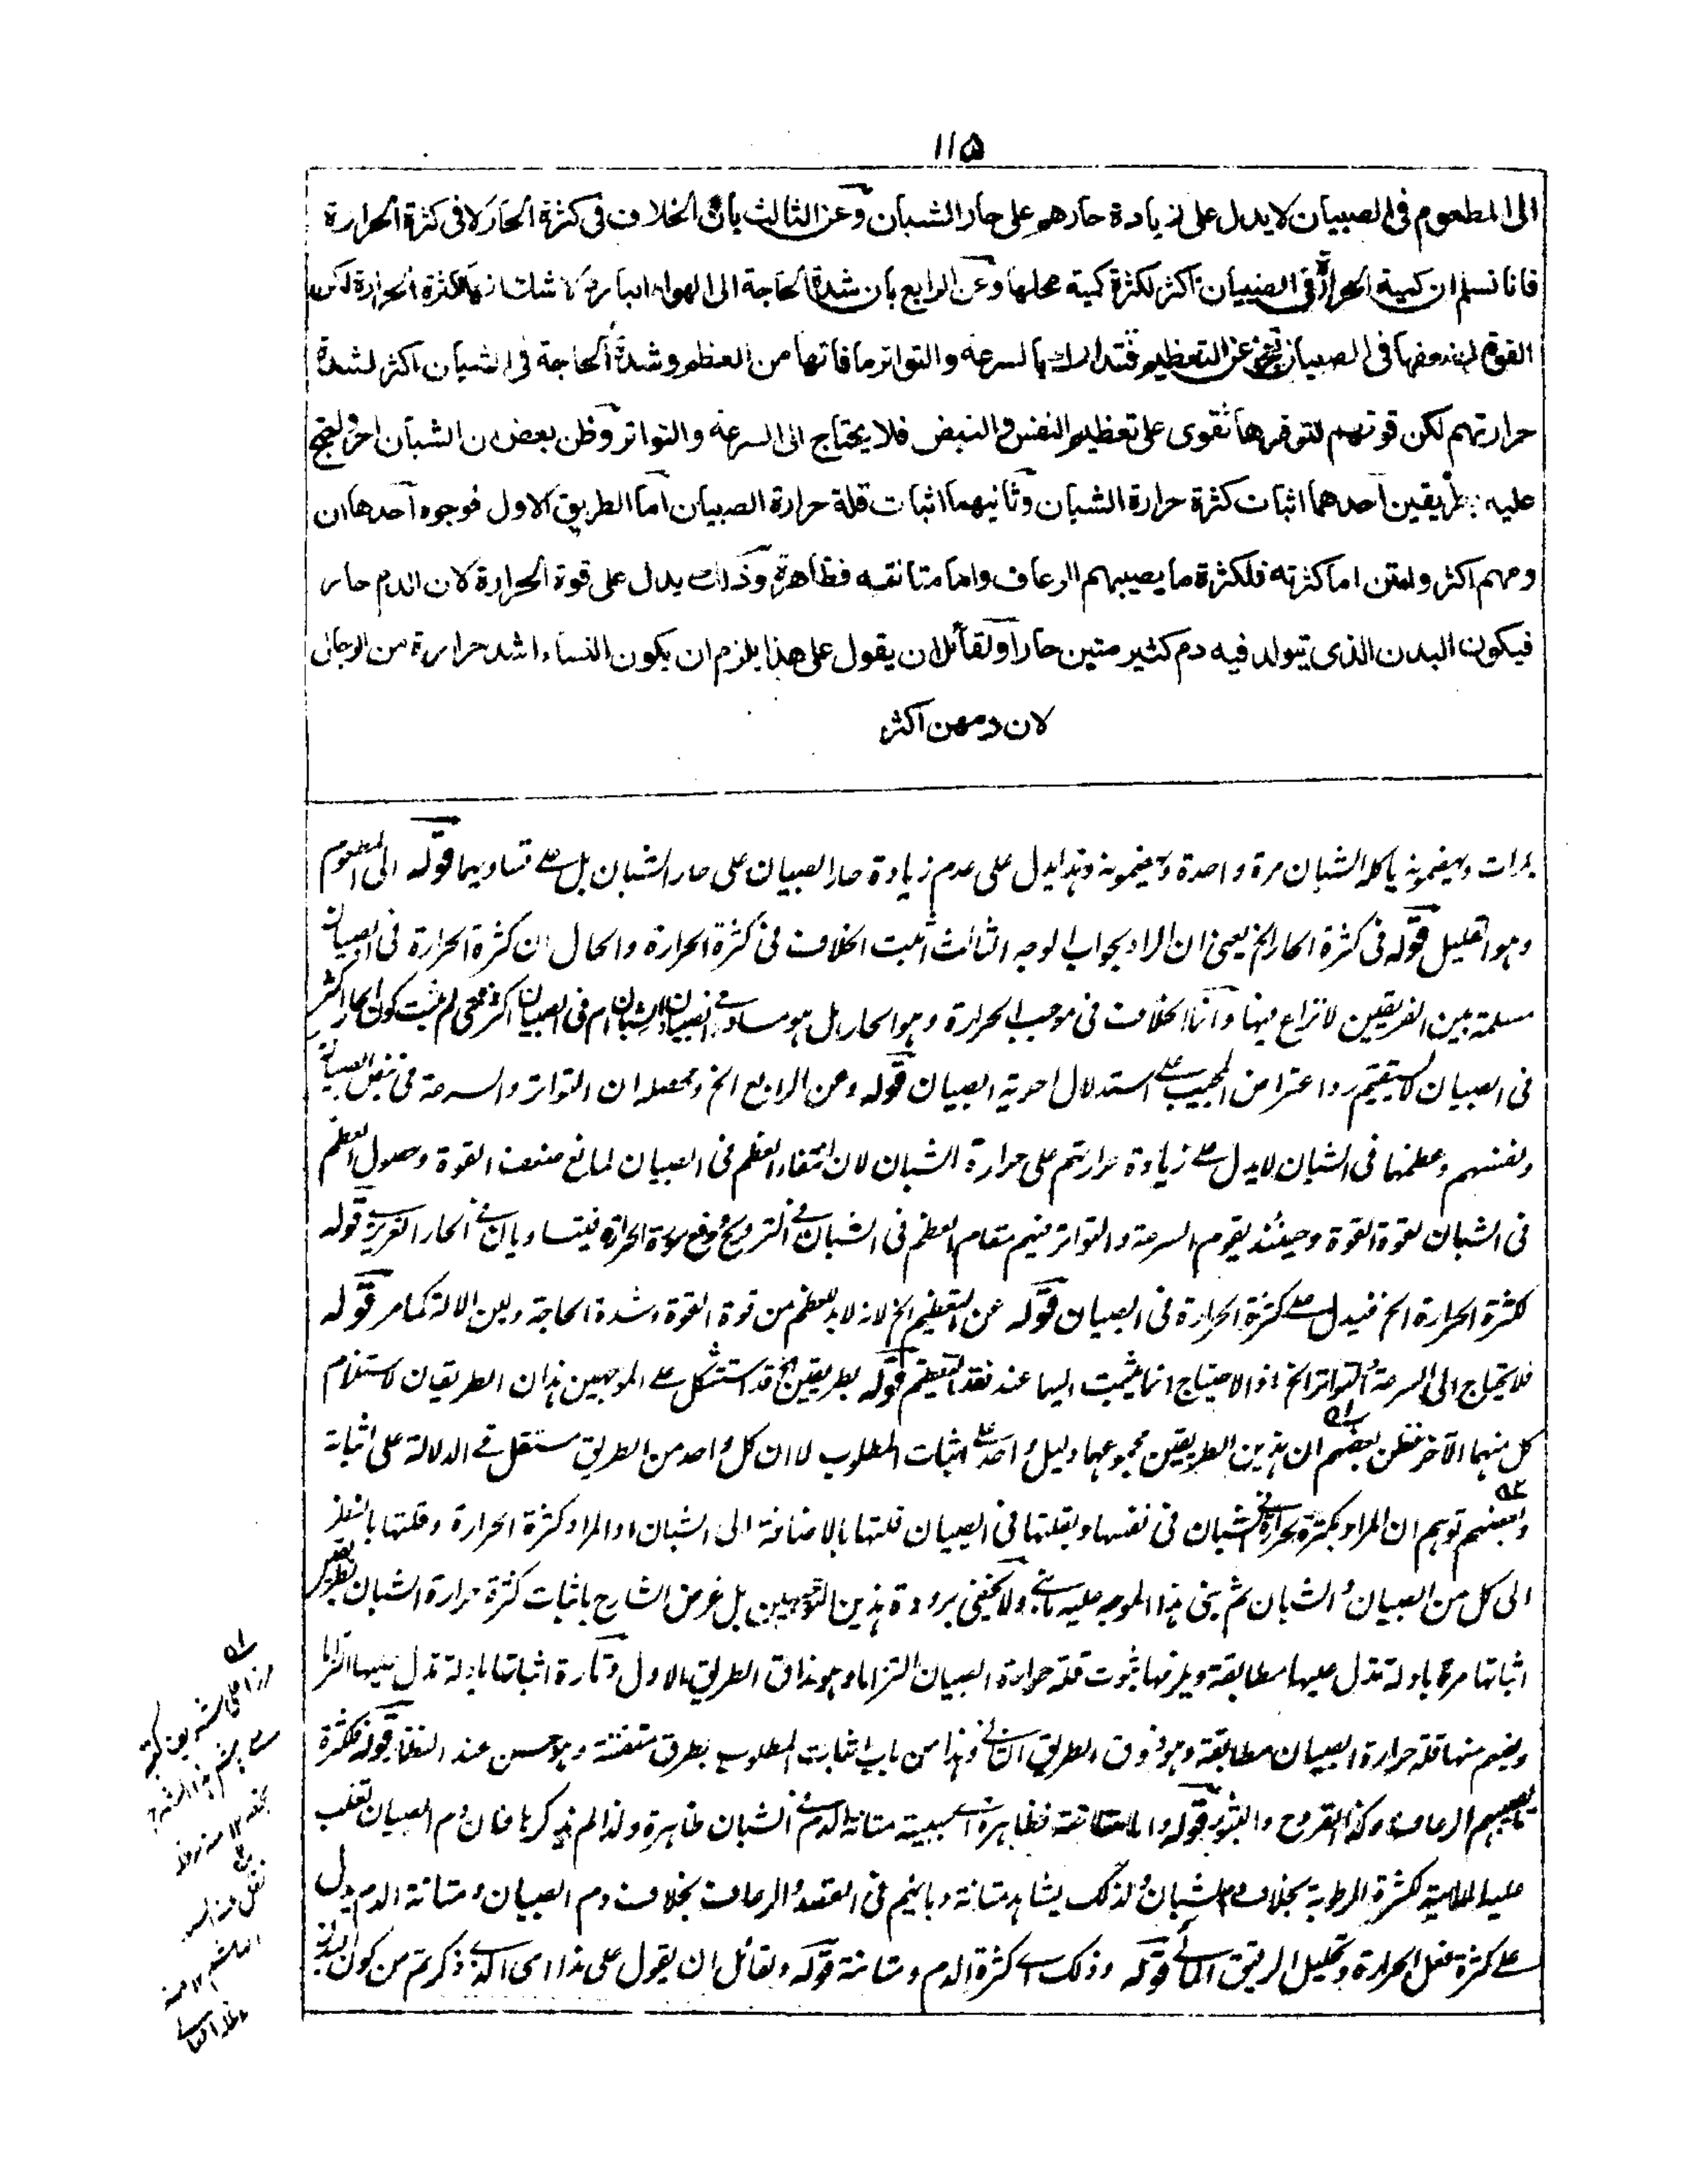 ۱۱۵
الى المطعوم فى الصبيان لا يدل على زيادة حارهم على حار الشبان وعن الثالث بان الخلاف فى كثرة الحار لا فى كثرة الحرارة
فانا نسلم ان كمية الحرارة فى الصبيان اكثر لكثرة كمية محلها وعن الرابع بان شدة الحاجة الى الهواء البارد لا شك انها لكثرة الحرارة لكن
القوة لضعفها فى الصبيان تعجز عن التعظيم فتتدارك بالسرعة والتواتر ما فاتها من العظم وشدة الحاجة فى الشبان اكثر لشدة
حرارتهم لكن قوتهم لتوفرها تقوى على تعظيم النفس والنبض فلا يحتاج الى السرعة والتواتر وظن بعض ان الشبان احر واحتج
عليه بطريقين احدهما اثبات كثرة حرارة الشبان وثانيهما اثبات قلة حرارة الصبيان اما الطريق الاول فوجوه احدها ان
دمهم اكثر وامتن اما كثرته فلكثرة ما يصيبهم الرعاف واما متانته فظاهرة وذلك يدل على قوة الحرارة لان الدم حار
فيكون البدن الذى يتولد فيه دم كثير متين حارا ولقائل ان يقول على هذا يلزم ان يكون النساء اشد حرارة من الرجال
لان دمهن اكثر
مرات ويهضمونه ياكله الشبان مرة واحدة ويهضمونه وهذا يدل على عدم زيادة حار الصبيان على حار الشبان بل على تساويهما قوله الى المطعوم
وهو القليل قوله فى كثرة الحار الخ يعنى ان المراد بجواب الوجه الثالث اثبت الخلاف فى كثرة الحرارة والحال ان كثرة الحرارة فى الصبيان
مسلمة بين الفريقين لا نزاع فيها وانما الخلاف فى موجب الحرارة وهو الحار بل هو مساو فى الصبيان والشبان ام فى الصبيان اكثر فمتى لم يثبت كون الحار اكثر
فى الصبيان لا يستقيم رد اعتراض المجيب على استدلال احرية الصبيان قوله وعن الرابع الخ ومحصله ان التواتر والسرعة فى نبض الصبيان
ونفسهم وعظمها فى الشبان لا يدل على زيادة حرارتهم على حرارة الشبان لان انتفاء العظم فى الصبيان لمانع ضعف القوة وحصول العظم
فى الشبان لقوة القوة وحينئذ يقوم السرعة والتواتر فيهم مقام العظم فى الشبان فى الترويح ودفع سورة الحرارة فيتساويان فى الحار الغريزى قوله
لكثرة الحرارة الخ فيدل على كثرة الحرارة فى الصبيان قوله عن التعظيم الخ لانه لا بد للعظم من قوة القوة وشدة الحاجة ولين الالة كما مر قوله
فلا يحتاج الى السرعة والتواتر الخ اذ الاحتياج انما يثبت اليها عند فقد التعظيم قوله بطريقين الخ قد استشكل على الموجهين هذان الطريقان لاستلزام
كل منهما الآخر فظن بعضهم ان هذين الطريقين مجموعهما دليل واحد على اثبات المطلوب لا ان كل واحد من الطريق مستقل فى الدلالة على اثباته
وبعضهم توهم ان المراد بكثرة حرارة الشبان فى نفسها وبقلتها فى الصبيان قلتها بالاضافة الى الشبان او المراد كثرة الحرارة وقلتها بالنظر
الى كل من الصبيان والشبان ثم بنى هذا الموجه عليه ولا يخفى برودة هذين التوجيهين بل غرض الشارح باثبات كثرة حرارة الشبان
اثباتها مرة بادلة تدل عليها مطابقة ويلزمها ثبوت قلة حرارة الصبيان التزاما وهو مذاق الطريق الاول وتارة اثباتها بادلة تدل عليها التزاما
ويفهم منها قلة حرارة الصبيان مطابقة وهو ذوق الطريق الثانى وهذا من باب اثبات المطلوب بطرق متفننة وهو حسن عند النظار قوله فلكثرة
ما يصيبهم الرعاف وكذا القروح والبثور قوله واما متانته فظاهرة اى سببية متانة الدم فى الشبان ظاهرة ولذا لم يذكرها فان دم الصبيان تغلب
عليه المائية لكثرة الرطوبة بخلاف دم الشبان ولذلك يشاهد متانة دمائهم فى الفصد والرعاف بخلاف دم الصبيان ومتانة الدم يدل
على كثرة فعل الحرارة وتحليل الرقيق المائى قوله وذلك اى كثرة الدم ومتانته قوله ولقائل ان يقول على هذا اى الذى ذكرتم من كون البدن